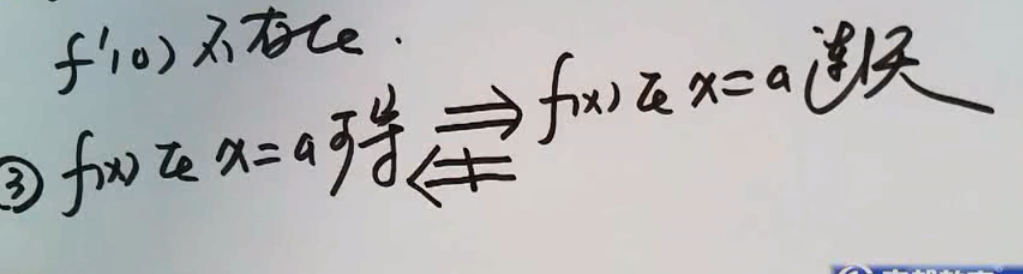 f'(0) 不存在.
③ f(x) 在 x=a 可导 ⇏⇒ f(x) 在 x=a 连续